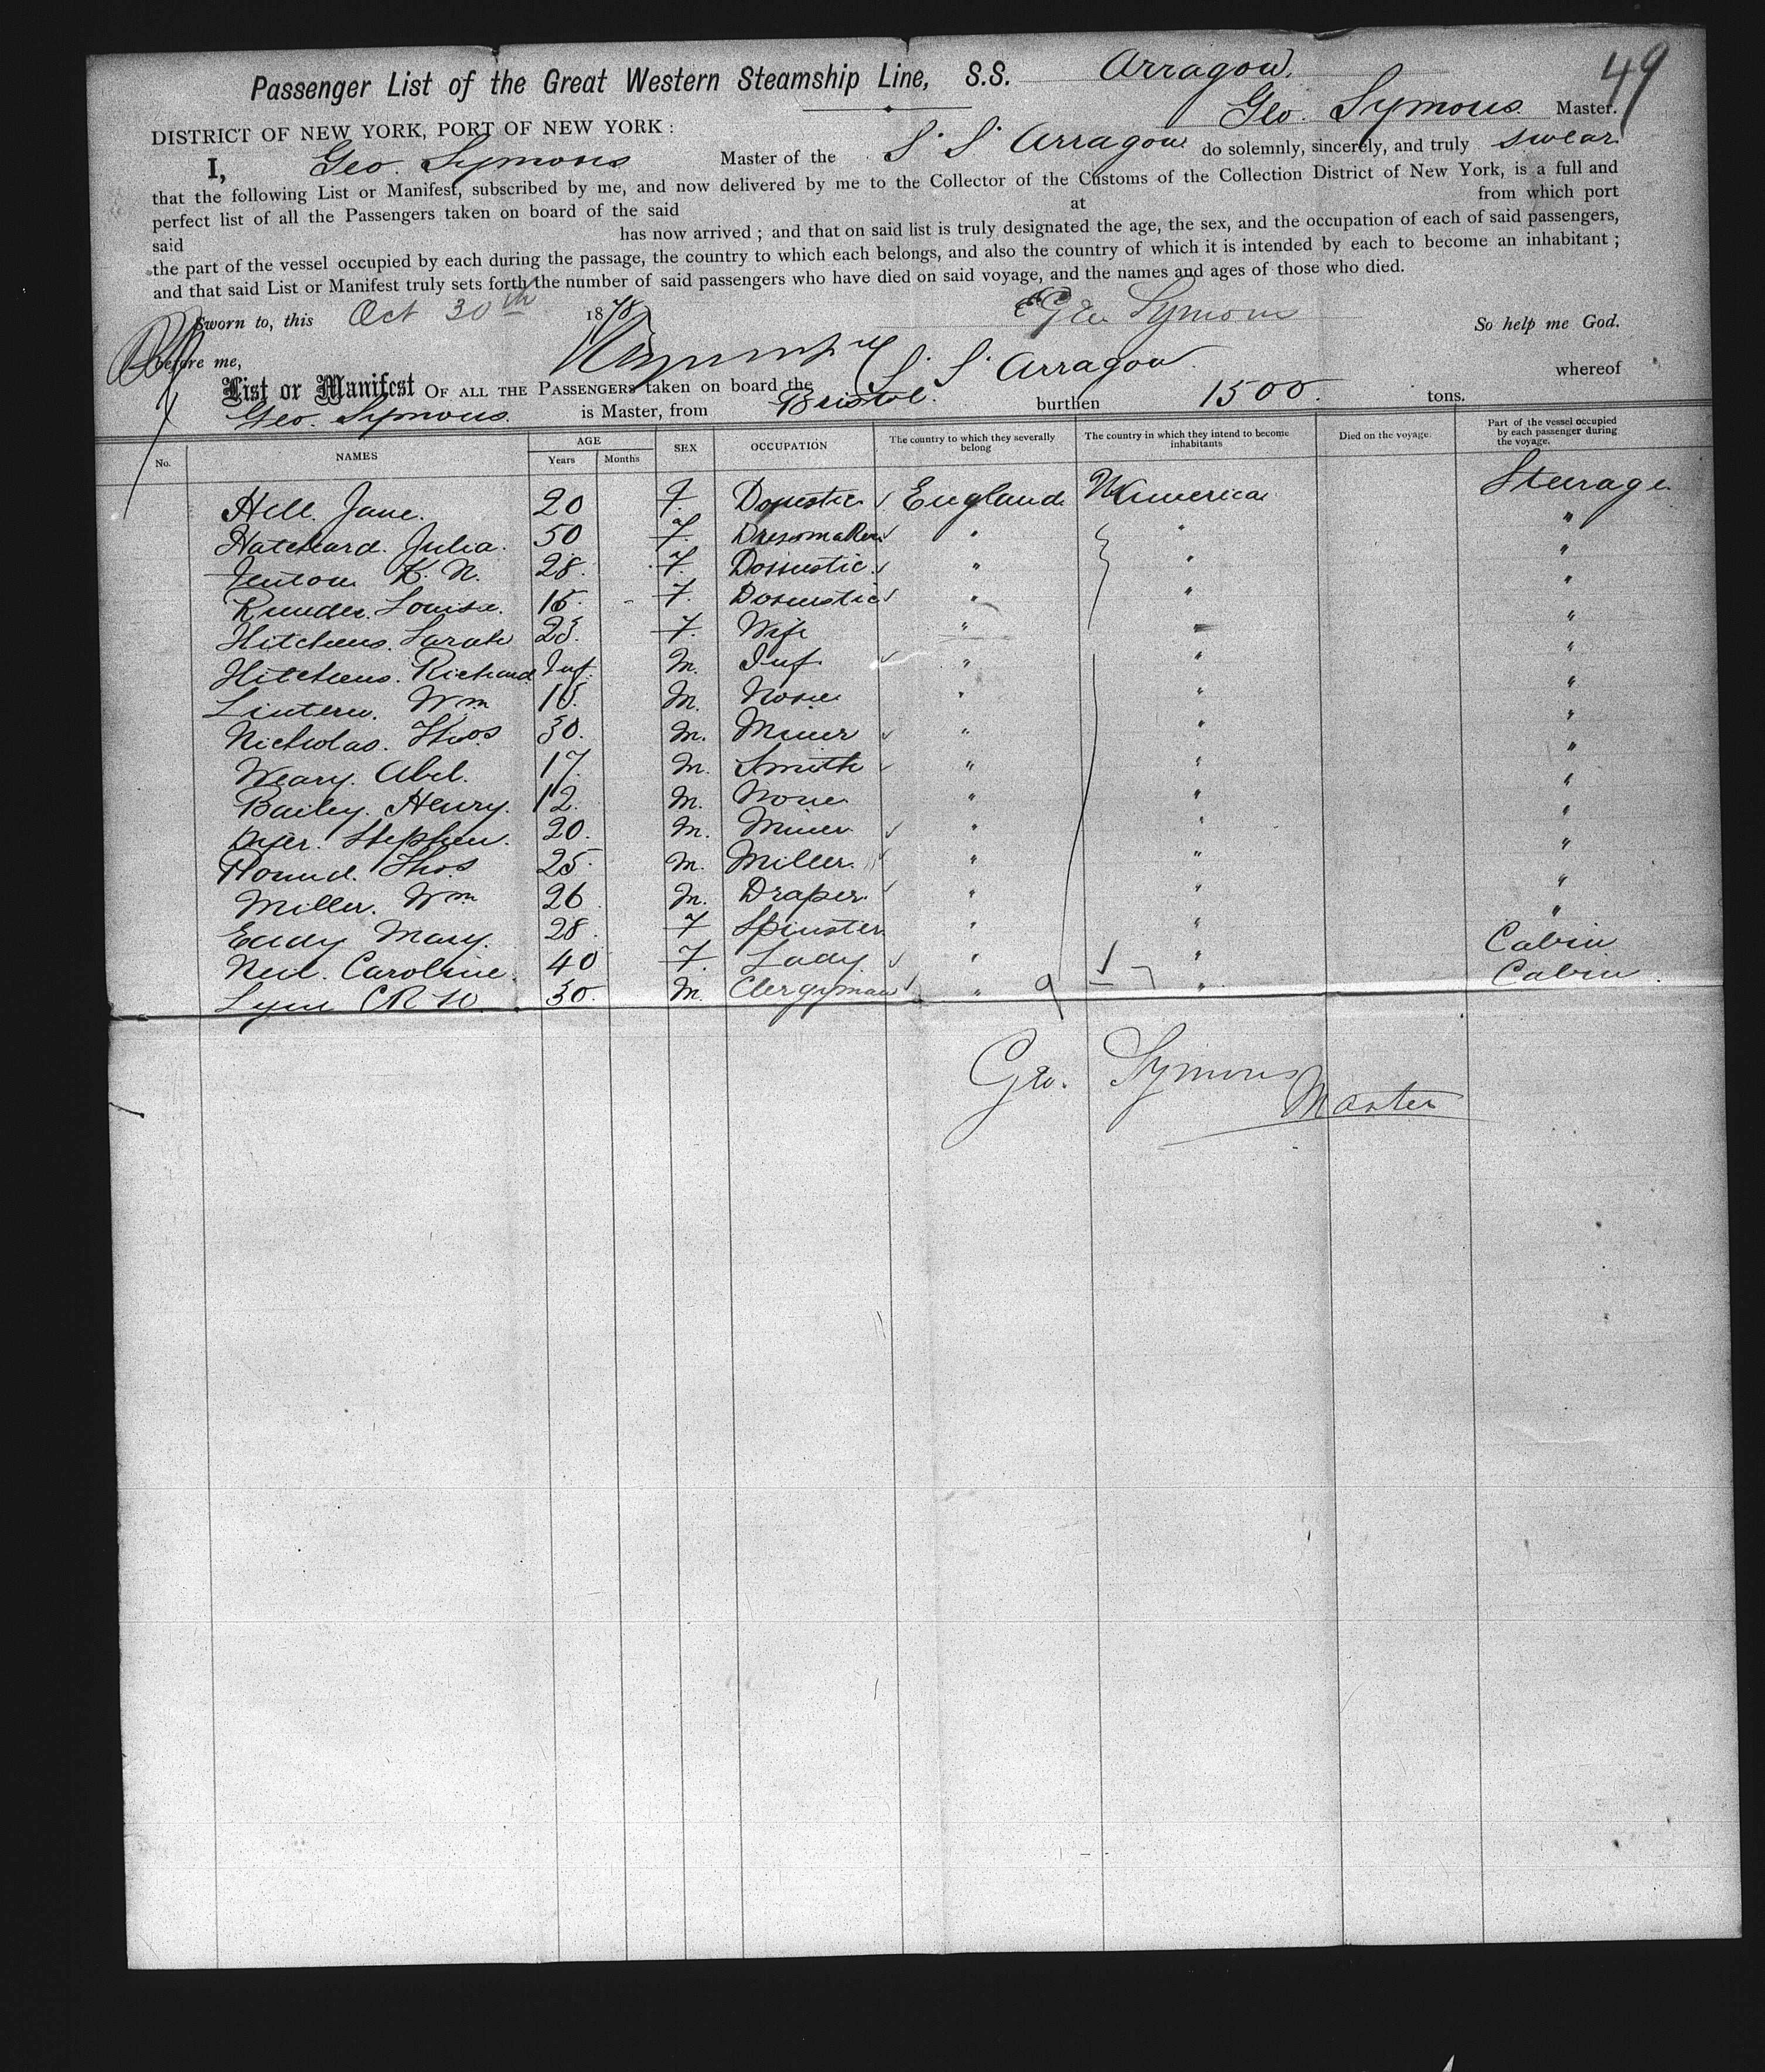 49
Passenger List of the Great Western Steamship Line, S.S. Arragon.
Geo. Symons. Master.
DISTRICT OF NEW YORK, PORT OF NEW YORK :
I, Geo. Symons Master of the S. S. Arragon do solemnly, sincerely, and truly swear
that the following List or Manifest, subscribed by me, and now delivered by me to the Collector of the Customs of the Collection District of New York, is a full and
perfect list of all the Passengers taken on board of the said at from which port
said has now arrived ; and that on said list is truly designated the age, the sex, and the occupation of each of said passengers,
the part of the vessel occupied by each during the passage, the country to which each belongs, and also the country of which it is intended by each to become an inhabitant ;
and that said List or Manifest truly sets forth the number of said passengers who have died on said voyage, and the names and ages of those who died.
Sworn to, this Oct 30th 1878 Geo Symons So help me God.
Before me,
List or Manifest OF ALL THE PASSENGERS taken on board the S. S. Arragon whereof
Geo. Symons. is Master, from Bristol. burthen 1500. tons.
No. NAMES AGE Years Months SEX OCCUPATION The country to which they severally belong The country in which they intend to become inhabitants Died on the voyage. Part of the vessel occupied by each passenger during the voyage.
Hill. Jane. 20 F. Domestic England N America Steerage
Hatcheard. Julia. 50 F. Dressmaker " " "
K. N. 28. F. Domestic. " " "
Louisa. 15. F. Domestic " " "
Hitchens. Sarah 23. F. Wife " " "
Hitchens. Richard Inf. M. Inf. " " "
Lintern. Wm 15. M. None " " "
Nicholas. Thos 30. M. Miner " " "
Weary. Abel. 17. M. Smith " " "
Bailey. Henry. 12. M. None " " "
Stephen. 20. M. Miner " " "
Thos 25. M. Miller. " " "
Miller. Wm 26 M. Draper. " " "
Eddy Mary. 28. F Spinster. " " "
Neil. Caroline. 40 F. Lady. " " Cabin
CR 30. M. Clergyman " " Cabin.
Geo. Symons
Master